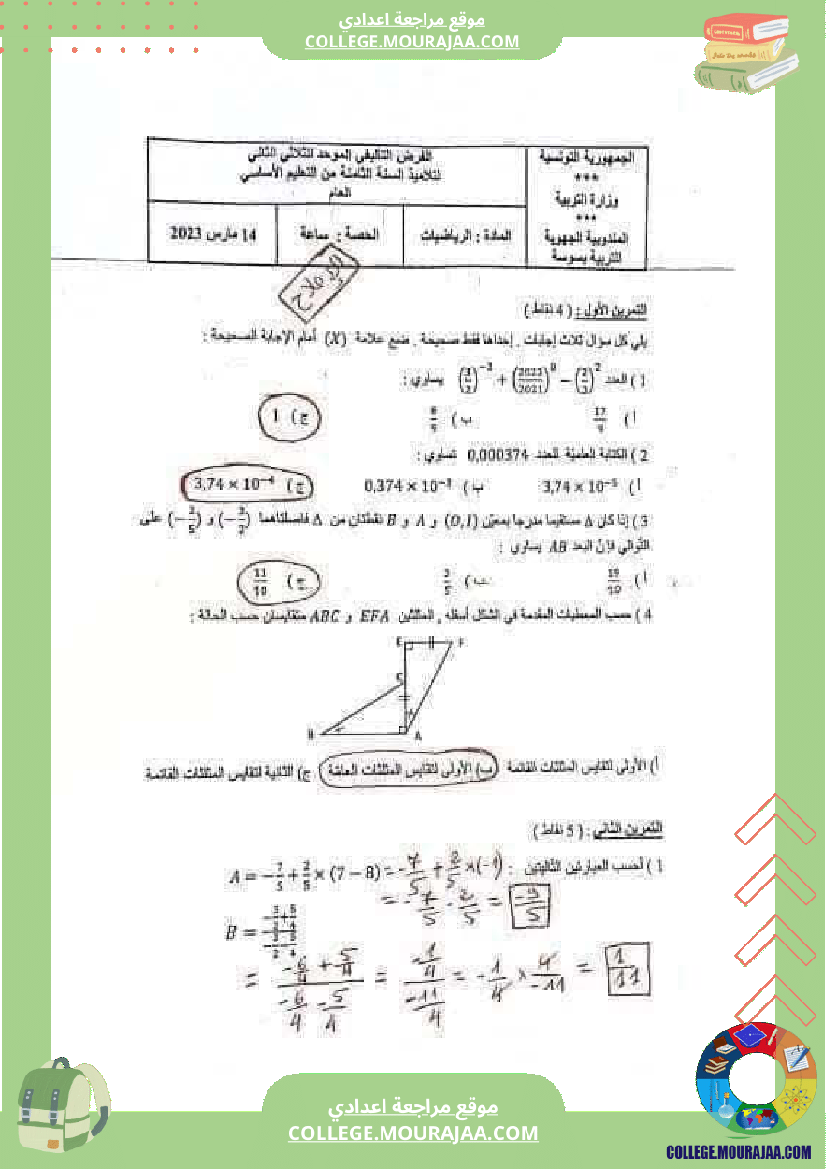 موقع مراجعة اعدادي
COLLEGE.MOURAJAA.COM
الجمهورية التونسية
***
وزارة التربية
***
المندوبية الجهوية
للتربية بسوسة
الفرض التأليفي الموحد للثلاثي الثاني
لتلاميذ السنة الثامنة من التعليم الأساسي
العام
المادة : الرياضيات
الحصة : ساعة
14 مارس 2023
التمرين الأول : ( 4 نقاط )
يلي كل سؤال ثلاث إجابات . إحداها فقط صحيحة . ضع علامة (X) أمام الإجابة الصحيحة :
1 ) العدد (3/2)^-3 + (2022/2021)^0 − (2/3)^2 يساوي :
أ ) 17/9 ب ) 8/9 ج ) 1
2 ) الكتابة العلمية للعدد 0,000374 تساوي :
أ ) 3,74 × 10^-5 ب ) 0,374 × 10^-3 ج ) 3,74 × 10^-4
3 ) إذا كان Δ مستقيما مدرجا بمعيّن (O,I) و A و B نقطتان من Δ فاصلتاهما (−3/2) و (−2/5) على
التوالي فإنّ البعد AB يساوي :
أ ) 19/10 ب ) ج ) 11/10
4 ) حسب المعطيات المقدمة في الشكل أسفله , المثلثين EFA و ABC متقايسان حسب الحالة :
E F
C
B A
أ) الأولى لتقايس المثلثات القائمة ب) الأولى لتقايس المثلثات العامّة ج) الثانية لتقايس المثلثات القائمة
التمرين الثاني : ( 5 نقاط )
1 ) أحسب العبارتين التاليتين : A = −7/5 + 2/5 × (7 − 8) = -7/5 + 2/5 × (-1)
= -7/5 - 2/5 = -9/5
B =
= (-6/4 + 5/4)/(-6/4 - 5/4) = (-1/4)/(-11/4) = -1/4 × 4/-11 = 1/11
موقع مراجعة اعدادي
COLLEGE.MOURAJAA.COM
COLLEGE.MOURAJAA.COM